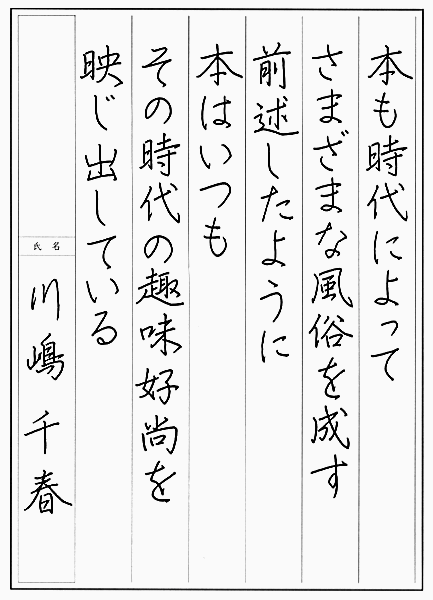 本も時代によって
さまざまな風俗を成す
前述したように
本はいつも
その時代の趣味好尚を
映じ出している
氏名
川嶋 千春